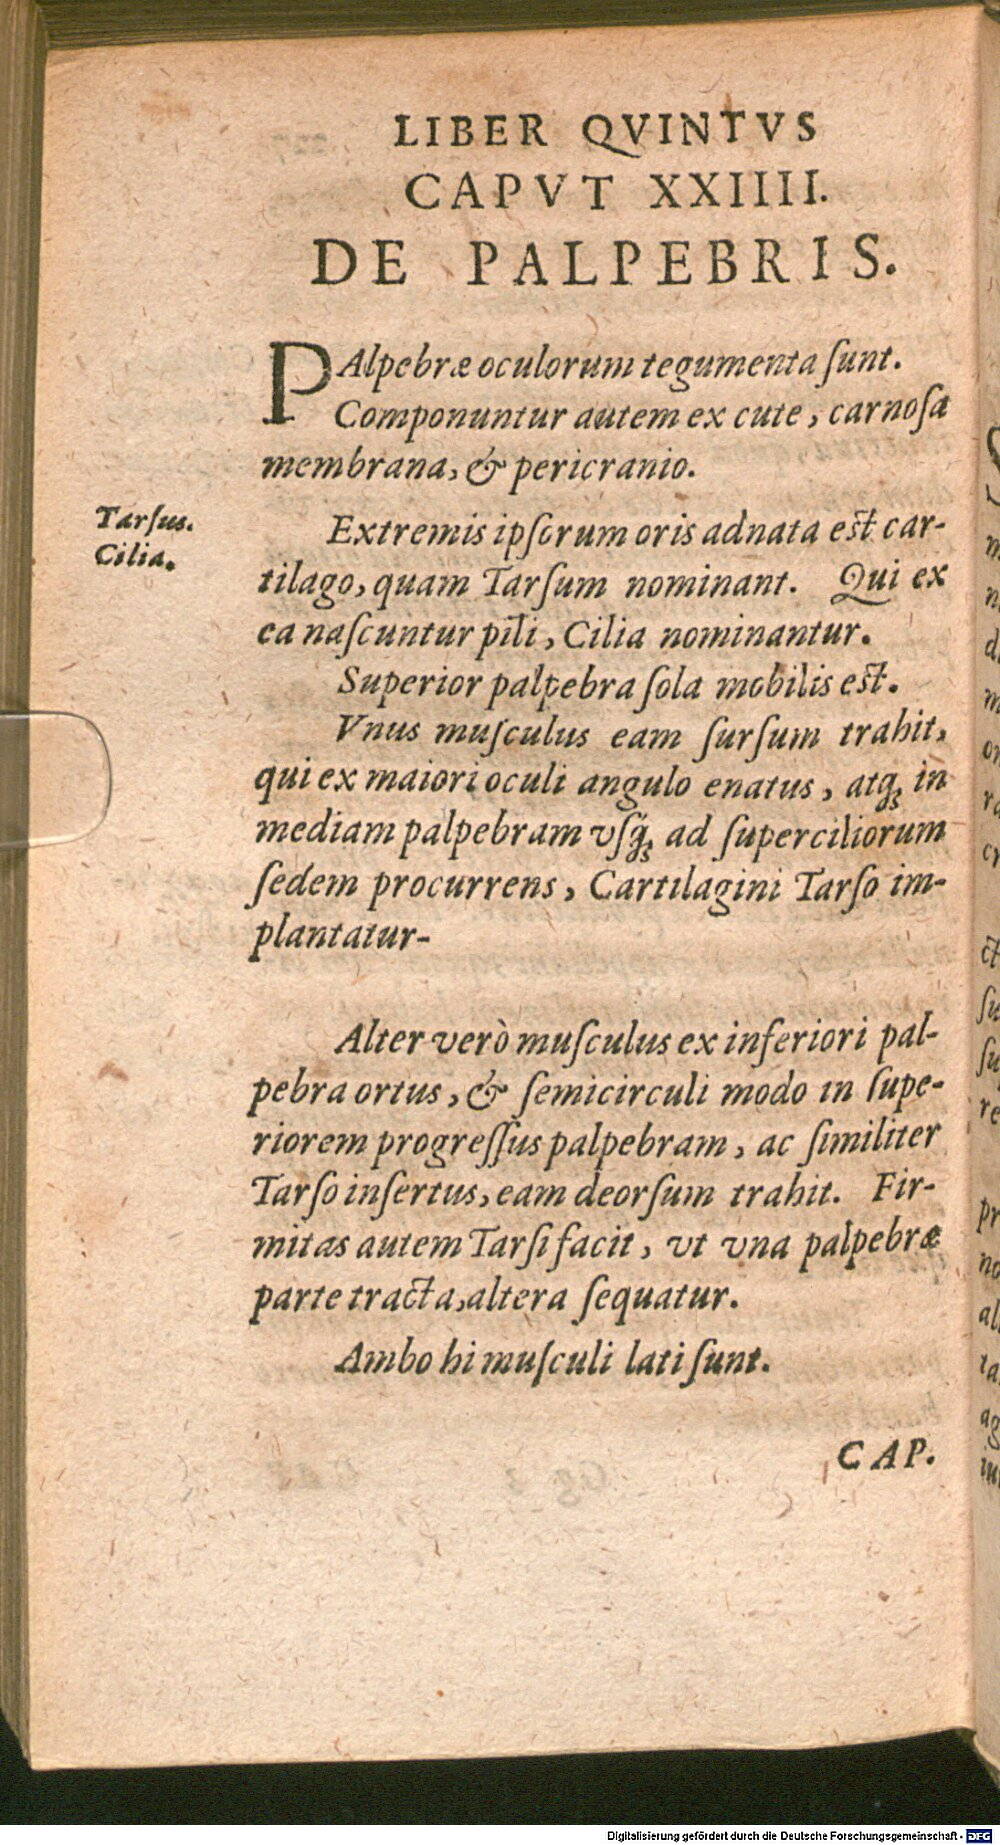 LIBER QVINTVS
CAPVT XXIIII.
DE PALPEBRIS.
PAlpebræ oculorum tegumenta ſunt.
Componuntur autem ex cute, carnoſa
membrana, & pericranio.
Tarſus.
Cilia.
Extremis ipſorum oris adnata est car-
tilago, quam Tarſum nominant. Qui ex
ea naſcuntur pili, Cilia nominantur.
Superior palpebra ſola mobilis est.
Vnus muſculus eam ſurſum trahit,
qui ex maiori oculi angulo enatus, atq; in
mediam palpebram vſq; ad ſuperciliorum
ſedem procurrens, Cartilagini Tarſo im-
plantatur-
Alter verò muſculus ex inferiori pal-
pebra ortus, & ſemicirculi modo in ſupe-
riorem progreſſus palpebram, ac ſimiliter
Tarſo inſertus, eam deorſum trahit. Fir-
mitas autem Tarſi facit, vt vna palpebræ
parte tracta, altera ſequatur.
Ambo hi muſculi lati ſunt.
CAP.
Digitalisierung gefördert durch die Deutsche Forschungsgemeinschaft - DFG